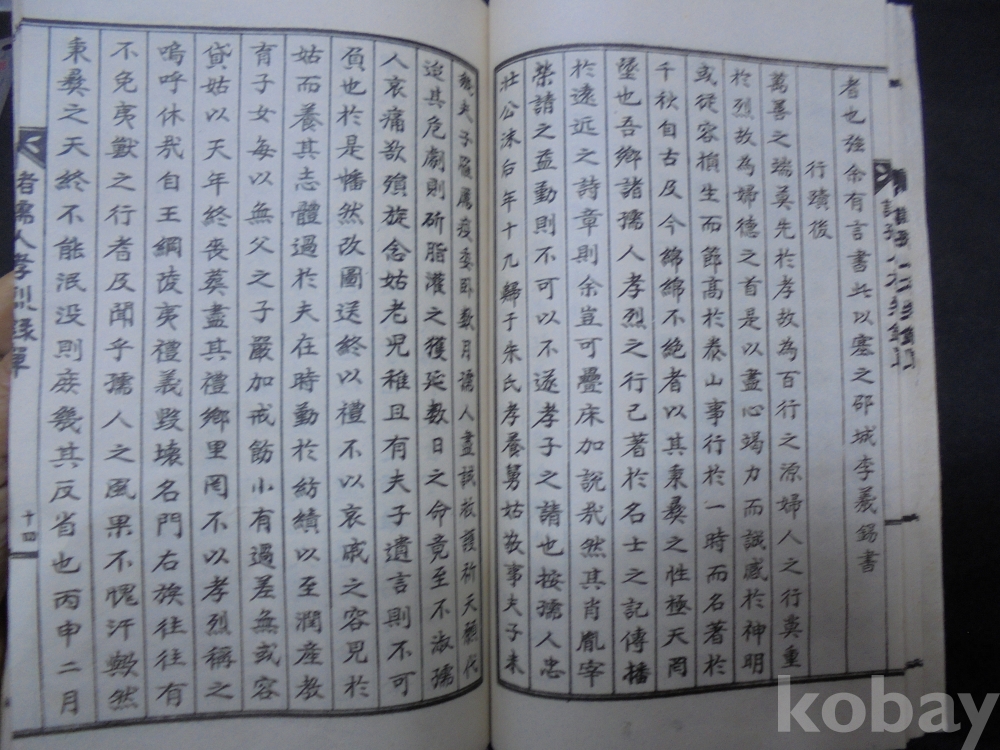 者也強余有言書此以塞之邵城李義錫書
行蹟後
萬善之端莫先於孝故為百行之源婦人之行莫重
於烈故為婦德之首是以盡心竭力而誠感於神明
或從容損生而節高於泰山事行於一時而名著於
千秋自古及今綿綿不絶者以其秉彝之性極天罔
墜也吾鄉諸孺人孝烈之行已著於名士之記傳播
於遠近之詩章則余豈可疊床加說哉然其肖胤宰
榮請之益勤則不可以不遂孝子之請也按孺人忠
壯公沫后年十九歸于朱氏孝養舅姑敬事夫子未
幾夫子罹厲疫委臥數月孺人盡誠救護祈天願代
迫其危劇則斫脂灌之獲延數日之命竟至不淑孺
人哀痛欲殞旋念姑老兒稚且有夫子遺言則不可
負也於是幡然改圖送終以禮不以哀戚之容見於
姑而養其志體過於夫在時勤於紡績以至潤産教
育子女每以無父之子嚴加戒飭小有過差無或容
貸姑以天年終喪葬盡其禮鄉里罔不以孝烈稱之
嗚呼休哉自王綱陵夷禮義毀壞名門右族往往有
不免夷獸之行者及聞乎孺人之風果不愧汗赧然
秉彝之天終不能泯没則庶幾其反省也丙申二月
孺人孝烈錄單
十四
kobay